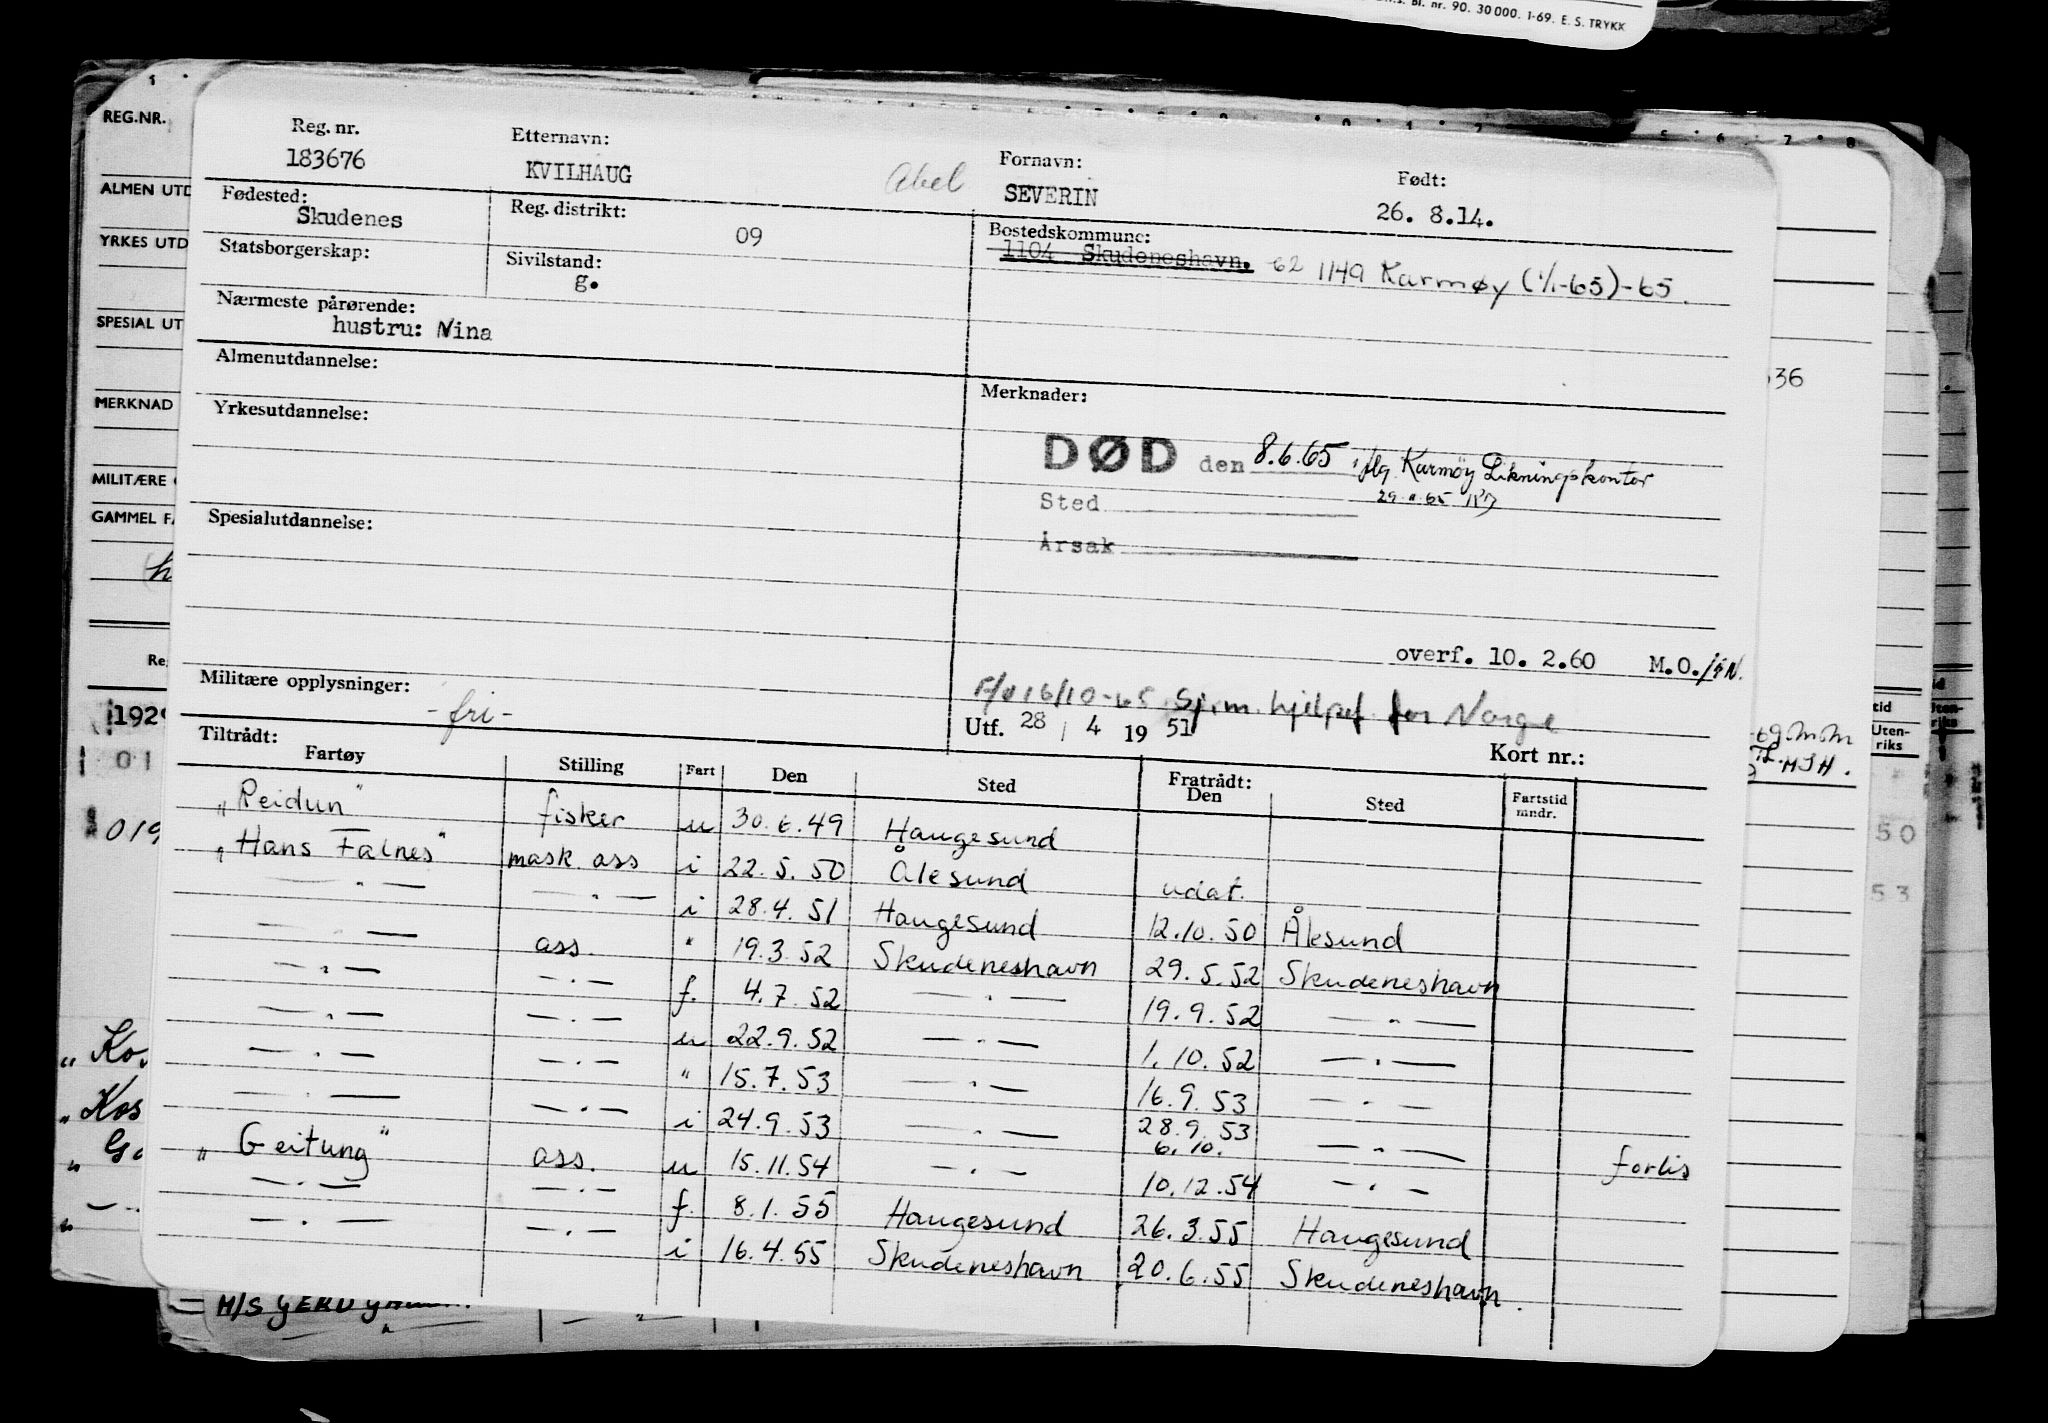 Bl. nr. 90. 30 000. 1-69. E. S. TRYKK
REG.NR.
ALMEN UTD
YRKES UTD
SPESIAL UT
MERKNAD
MILITÆRE
GAMMEL FA
Reg. nr. Etternavn: Fornavn: Født:
183676 KVILHAUG Abel SEVERIN 26. 8.14.
Fødested: Reg. distrikt: Bostedskommune:
Skudenes 09 1104 Skudeneshavn. 62 1149 Karmøy (1/1-65)-65.
Statsborgerskap: Sivilstand:
g.
Nærmeste pårørende:
hustru: Nina
Almenutdannelse:
Merknader:
Yrkesutdannelse:
DØD den 8.6.65 iflg. Karmøy Likningskontor
Sted
Spesialutdannelse:
Årsak
overf. 10. 2.60 M.O.
Militære opplysninger:
-fri-
16/10-65 Sj.m. hjelpef. for Norge
Utf. 28 / 4 19 51
Kort nr.:
Tiltrådt: Fratrådt:
Fartøy Stilling Fart Den Sted Den Sted Fartstid mndr.
"Reidun" fisker u 30.6.49 Haugesund
"Hans Falnes" mask ass i 22.5.50 Ålesund udat.
— " — — " — i 28.4.51 Haugesund 12.10.50 Ålesund
— " — ass. " 19.3.52 Skudeneshavn 29.5.52 Skudeneshavn
— " — — " — f. 4.7.52 — " — 19.9.52 — " —
— " — — " — u 22.9.52 — " — 1.10.52 — " —
— " — — " — " 15.7.53 — " — 16.9.53 — " —
— " — — " — i 24.9.53 — " — 28.9.53 — " —
6.10.
"Geitung" ass. u 15.11.54 — " — 10.12.54 — " — forlis
— " — — " — f. 8.1.55 Haugesund 26.3.55 Haugesund
— " — — " — i 16.4.55 Skudeneshavn 20.6.55 Skudeneshavn.
36
Uten-
riks
50
53
1929
01
019
M/S GERD